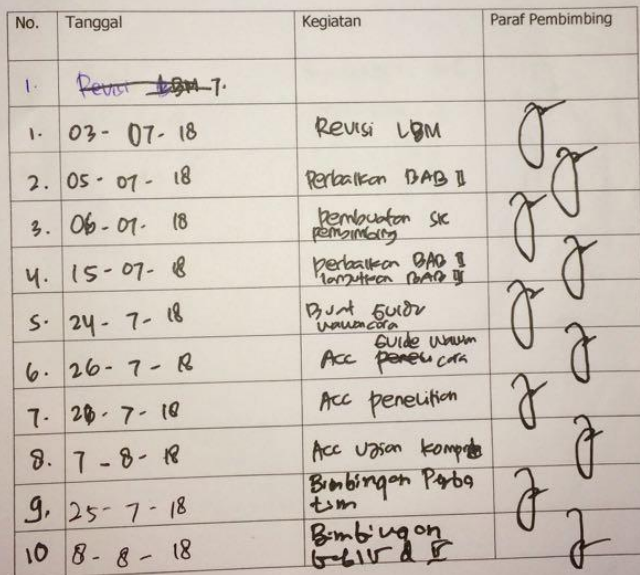 No. Tanggal Kegiatan Paraf Pembimbing
1. Revisi LBM 7.
1. 03 - 07 - 18 Revisi LBM
2. 05 - 07 - 18 Perbaikan BAB II
3. 06 - 07 - 18 Pembuatan SK
pembimbing
4. 15 - 07 - 18 perbaikan BAB II
lanjutkan BAB III
5. 24 - 7 - 18 Buat Guide
wawancara
6. 26 - 7 - 18 Acc Guide wawan
cara
7. 7 - 18 Acc penelitian
8. 7 - 8 - 18 Acc Ujian kompre
9. 25 - 7 - 18 Bimbingan
10 8 - 8 - 18 Bimbingan
bab IV & V